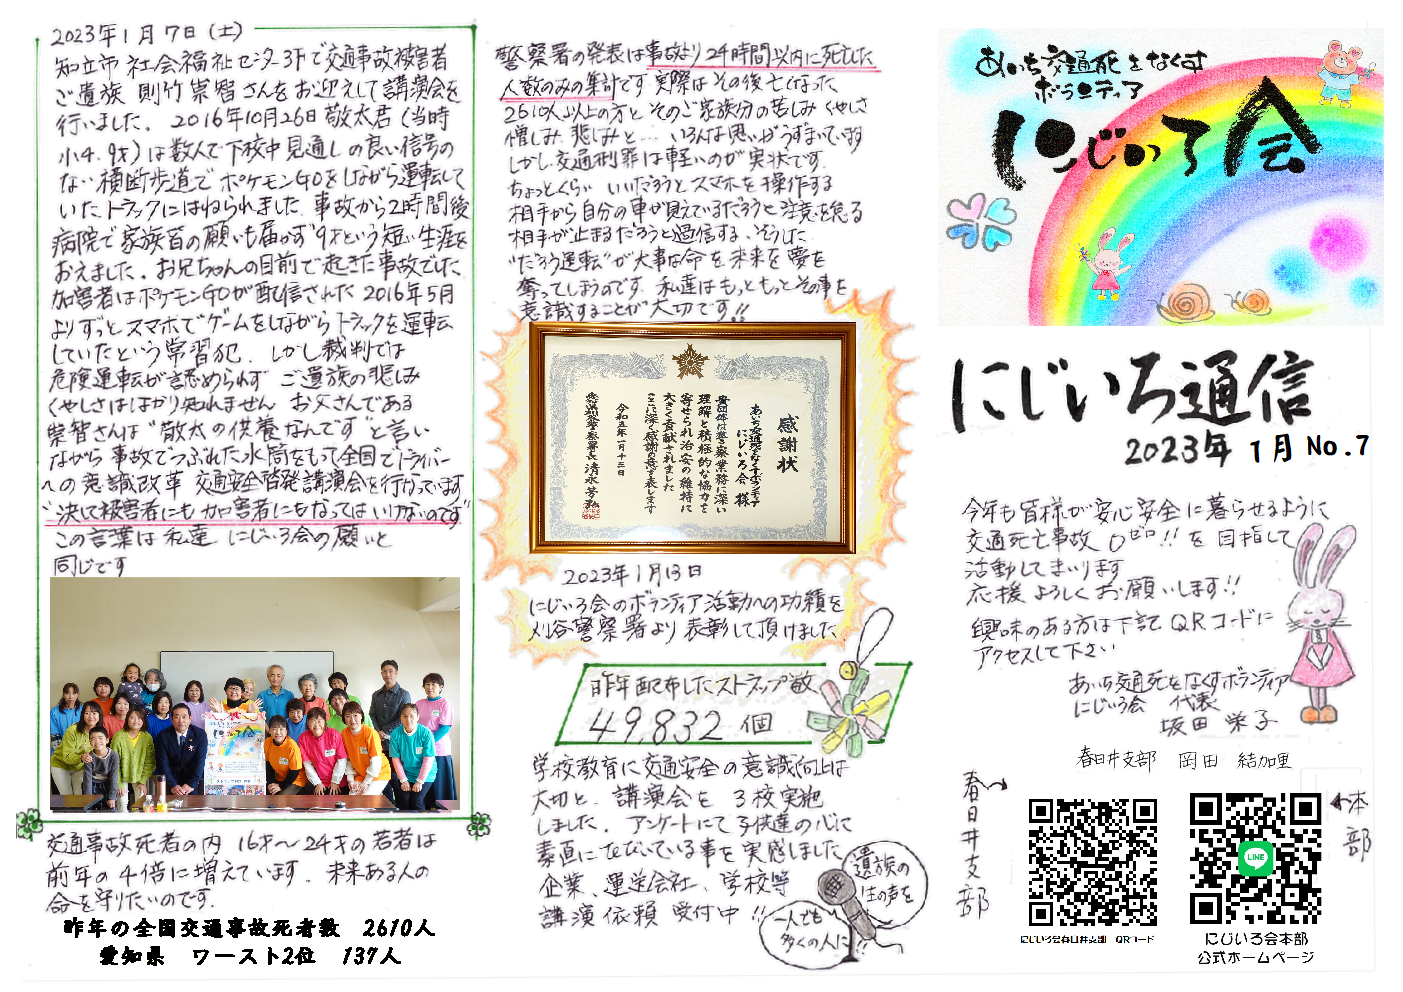 あいち交通死をなくす
ボランティア
にじいろ会
にじいろ通信
2023年 1月 No.7
今年も皆様が安心安全に暮らせるように
交通死亡事故 0ゼロ!! を目指して
活動してまいります
応援 よろしくお願いします!!
興味のある方は下記QRコードに
アクセスして下さい
あいち交通死をなくすボランティア
にじいろ会 代表
坂田 栄子
春日井支部 岡田 結加里
春日井支部
本部
LINE
にじいろ会春日井支部 QRコード
にじいろ会本部
公式ホームページ
2023年1月7日(土)
知立市 社会福祉センター3Fで交通事故被害者
ご遺族 則竹崇智さんをお迎えして講演会を
行いました. 2016年10月26日 敬太君(当時
小4.9才)は数人で下校中見通しの良い信号の
ない横断歩道でポケモンGOをしながら運転して
いたトラックにはねられました. 事故から2時間後
病院で家族皆の願いも届かず9才という短い生涯を
おえました. お兄ちゃんの目前で起きた事故でした
加害者はポケモンGOが配信された2016年5月
よりずっとスマホでゲームをしながらトラックを運転
していたという常習犯. しかし裁判では
危険運転が認められず ご遺族の悲しみ
くやしさははかり知れません お父さんである
崇智さんは"敬太の供養なんです"と言い
ながら事故でつぶれた水筒をもって全国でドライバー
への意識改革 交通安全啓発講演会を行かっています
"決して被害者にも加害者にもなってはいけないのです"
この言葉は私達 にじいろ会の願いと
同じです
にじいろ会
交通事故死者の内 16才~24才の若者は
前年の4倍に増えています. 未来ある人の
命を守りたいのです.
昨年の全国交通事故死者数 2610人
愛知県 ワースト2位 137人
警察署の発表は事故より24時間以内に死亡した
人数のみの集計です 実際はその後亡くなった
2610人以上の方と そのご家族分の苦しみ くやしさ
憎しみ 悲しみと… いろんな思いがうずまいています
しかし交通刑罪は軽いのが実状です.
ちょっとくらい いいだろうとスマホを操作する
相手から自分の車が見えているだろうと注意を怠る
相手が止まるだろうと過信する、そうした
"だろう運転"が大事な命を未来を夢を
奪ってしまうのです. 私達はもっともっとその事を
意識することが大切です!!
感謝状
あいち交通死をなくすボランティア
にじいろ会 様
貴団体は警察業務に深い
理解と積極的な協力を
寄せられ治安の維持に
大きく貢献されました
ここに深く感謝の意を表します
令和五年一月十三日
2023年1月13日
にじいろ会のボランティア活動への功績を
刈谷警察署より表彰して頂けました.
昨年配布したストラップ数
49,832個
学校教育に交通安全の意識向上は
大切と、講演会を3校実施
しました. アンケートにて子供達の心に
素直にひびいている事を実感しました
企業、運送会社、学校等
講演依頼 受付中!!
遺族の
生の声を
一人でも
多くの人に!!